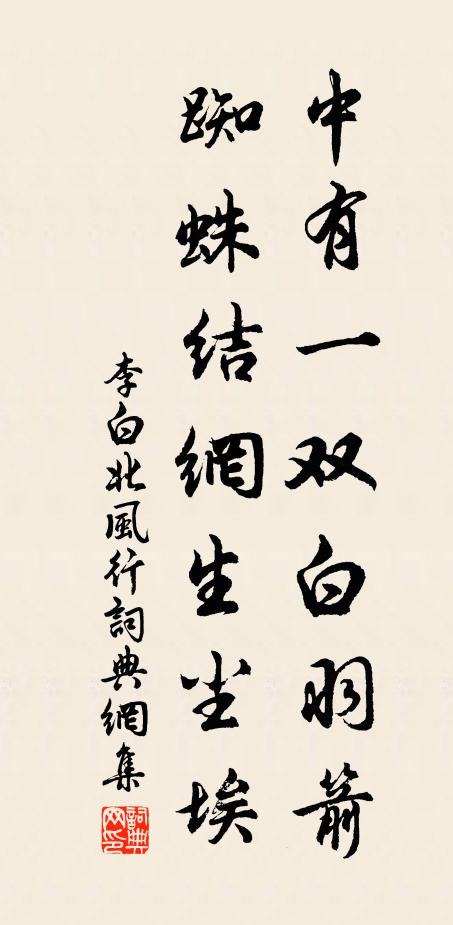 中有一双白羽箭
蜘蛛結網生尘埃
李白北風行詞典網集
詞典网印